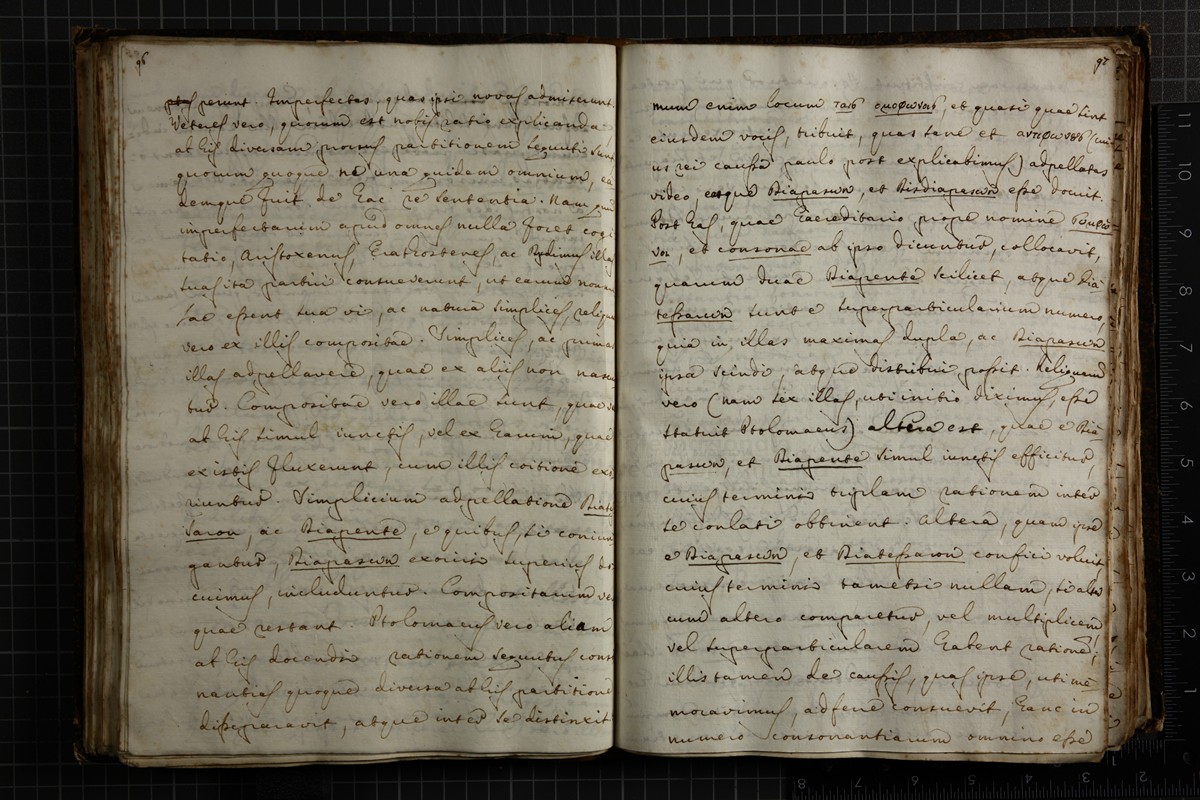 96
perunt. Imperfectas, quas ipsi novas admiserunt.
Veteres vero, quorum est nobis ratio explicanda,
ab his diversam prorsus partitionem sequuti sunt
quorum quoque nō una quidem omnium, ea
demque fuit de hac re sententia. Nam quū
imperfectarum apud omnes nulla foret cogi
tatio, Aristoxenus, Erathostenes, ac Didimus illas
suas ita partiri consueverunt, ut earum non
essent sua vi, ac natura simplices, reliquae
vero ex illis compositae. Simplices, ac primas
illas adpellavere, quae ex aliis non nascū
tur. Compositae vero illae sunt, quae
ab his simul iunctis, vel ex harum, quae
ex istis fluxerunt, cum illis coitione exo
riuntur. Simplicium adpellatione Diates
saron, ac Diapente, e quibus, si coniun
gantur, Diapason exoriri superius do
cuimus, includuntur. Compositarum ve
quae restant. Ptolomaeus vero aliam
ab his docendi rationem sequutus conso
nantias quoque diversa ab his partitione
disseparavit, atque inter se distinxit
97
mum enim locum ταις ομοφωνοις, et quasi quae sint
eiusdem vocis, tribuit, quas sane et αντιφωνους (cui
us rei caussa paulo post explicabimus) adpellatas
video, eatque Diapason, et Disdiapason esse docuit.
Post has, quae haereditario prope nomine συμφω
νοι, et consonae ab ipso dicuntur, collocavit,
quarum duae Diapente scilicet, atque Dia
tessaron sunt e superparticularium numero,
quia in illas maximas dupla, ac Diapason
ipsa scindi, atque distribui possit. Reliquarum
vero (nam sex illas, uti initio diximus, esse
statuit Ptolomaeus) altera est, quae e Dia
pason, et Diapente simul iunctis efficitur,
cuius termini triplam rationem inter
se conlati obtinent. Altera, quam ipse
e Diapason, et Diatessaron confici voluit
cuius termini tametsi nullam, si alter
cum altero comparetur, vel multiplicem
vel superparticularem habent rationē;
illis tamen de caussis, quas ipse, uti me
moravimus, adferre consuevit, hanc in
numero consonantiarum omnino esse